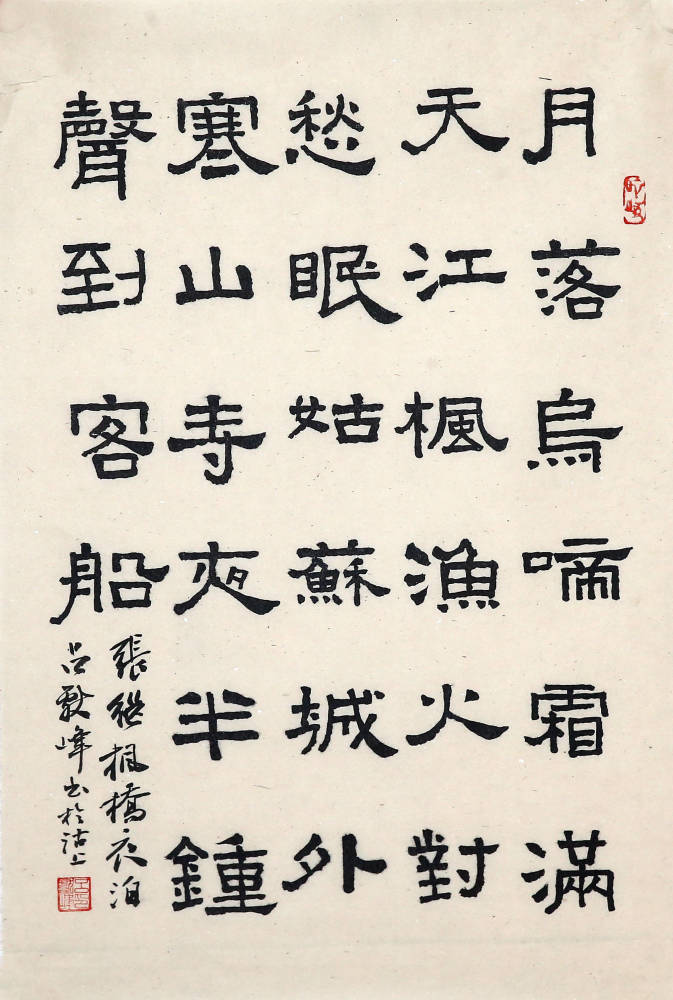 月落烏啼霜滿
天江楓漁火對
愁眠姑蘇城外
寒山寺夜半鍾
聲到客船
張繼楓橋夜泊
吕獻峰书於沽上